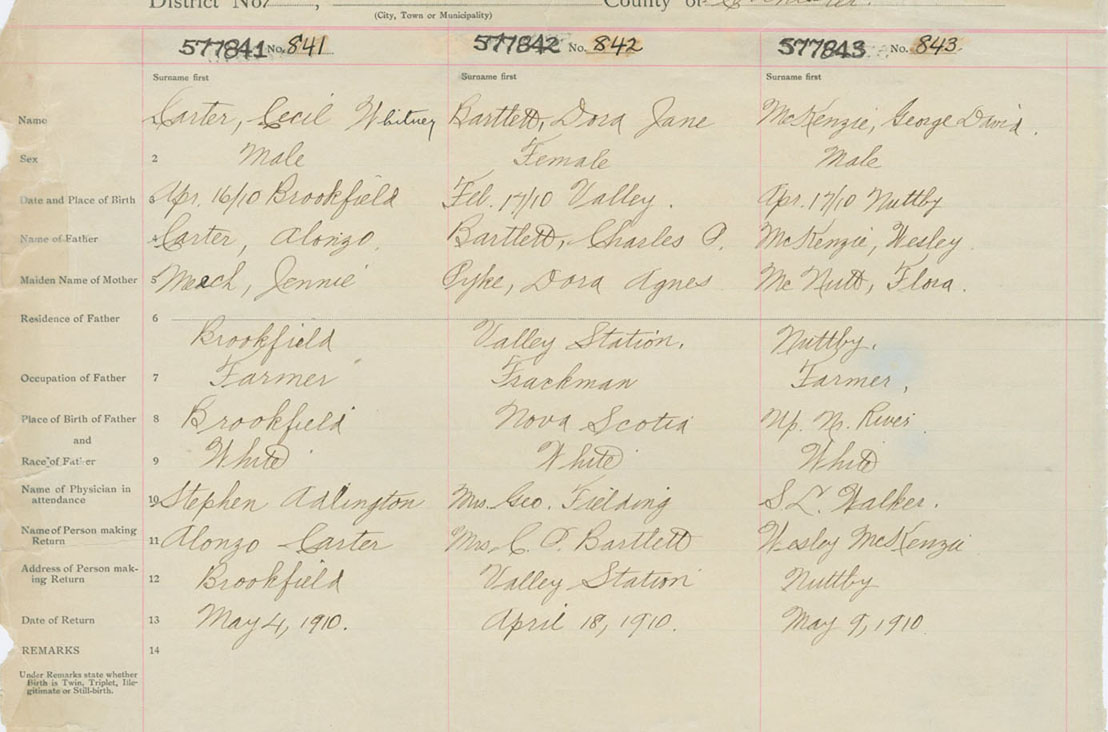 District No. , County of
(City, Town or Municipality)
577841 No. 841 577842 No. 842 577843 No. 843
Surname first Surname first Surname first
Name 1 Carter, Cecil Whitney Bartlett, Dora Jane McKenzie, George David.
Sex 2 Male Female Male
Date and Place of Birth 3 Apr. 16/10 Brookfield Feb. 17/10 Valley. Apr. 17/10 Nuttby
Name of Father 4 Carter, Alonzo. Bartlett, Charles P. McKenzie, Wesley.
Maiden Name of Mother 5 Meach, Jennie Pyke, Dora Agnes McNutt, Flora.
Residence of Father 6 Brookfield Valley Station. Nuttby.
Occupation of Father 7 Farmer Trackman Farmer,
Place of Birth of Father 8 Brookfield Nova Scotia Up. N. River
and
Race of Father 9 White White White
Name of Physician in
attendance 10 Stephen Adlington Mrs. Geo. Fielding S. L. Walker.
Name of Person making
Return 11 Alonzo Carter Mrs. C. P. Bartlett Wesley McKenzie
Address of Person mak-
ing Return 12 Brookfield Valley Station Nuttby
Date of Return 13 May 4, 1910. April 18, 1910. May 9, 1910
REMARKS 14
Under Remarks state whether
Birth is Twin, Triplet, Ille-
gitimate or Still-birth.